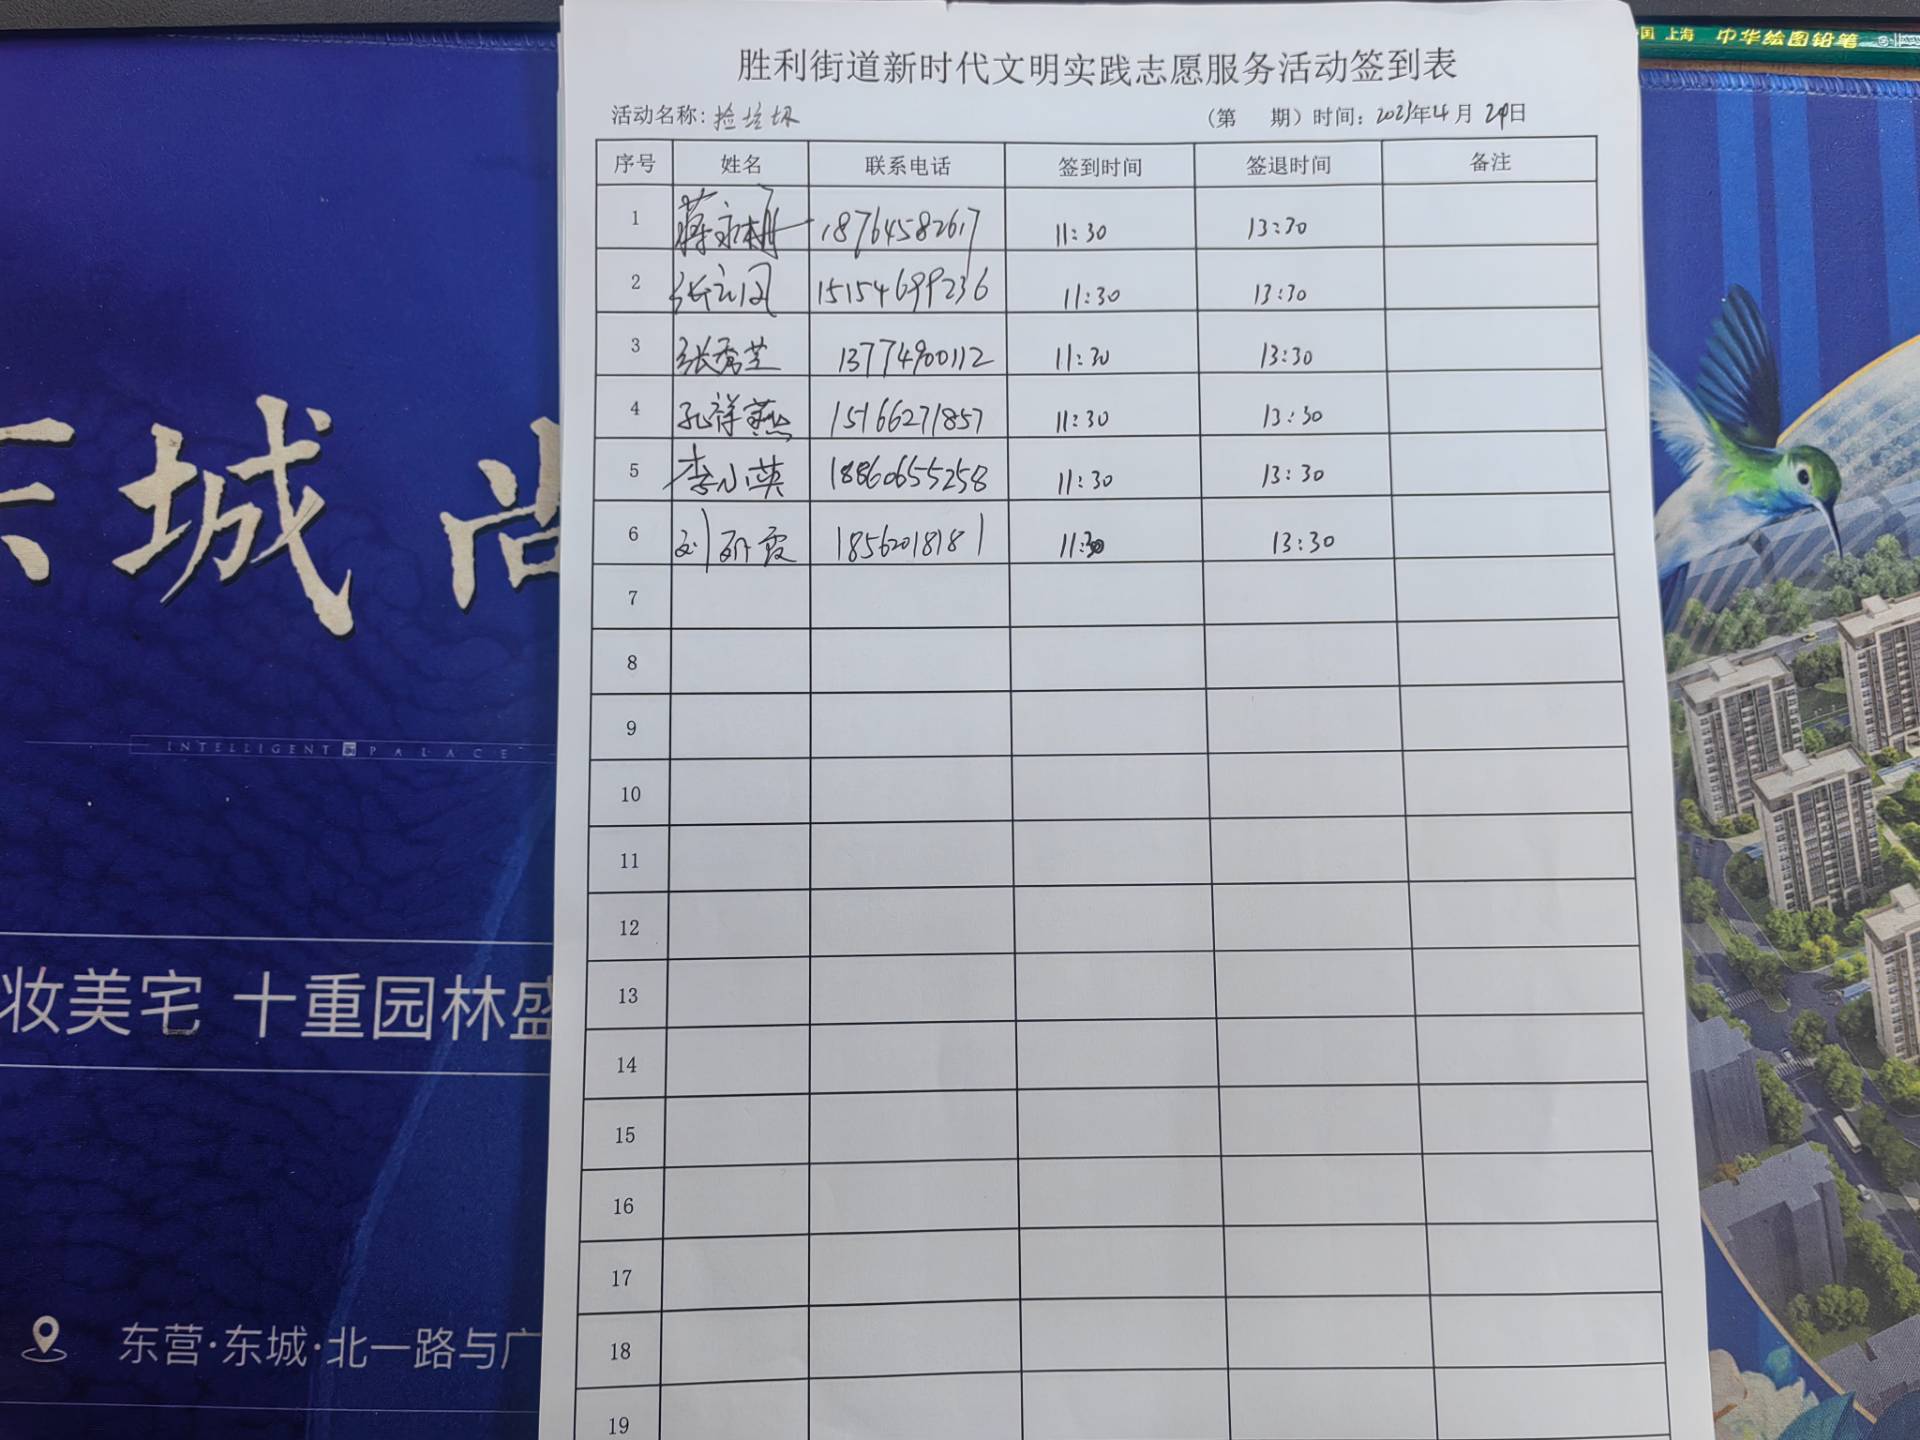 中国 上海 中华绘图铅笔
胜利街道新时代文明实践志愿服务活动签到表
活动名称：捡垃圾 （第 期）时间：2023年4月29日
序号 姓名 联系电话 签到时间 签退时间 备注
1 蒋永耕 18764582617 11:30 13:30
2 张立国 15154699236 11:30 13:30
3 张秀芝 13774900112 11:30 13:30
4 孔祥燕 15166271857 11:30 13:30
5 李小英 18860655258 11:30 13:30
6 刘研霞 18562018181 11:30 13:30
7
8
9
10
11
12
13
14
15
16
17
18
19
东城 尚
INTELLIGENT PALACE
妆美宅 十重园林盛
东营·东城·北一路与广